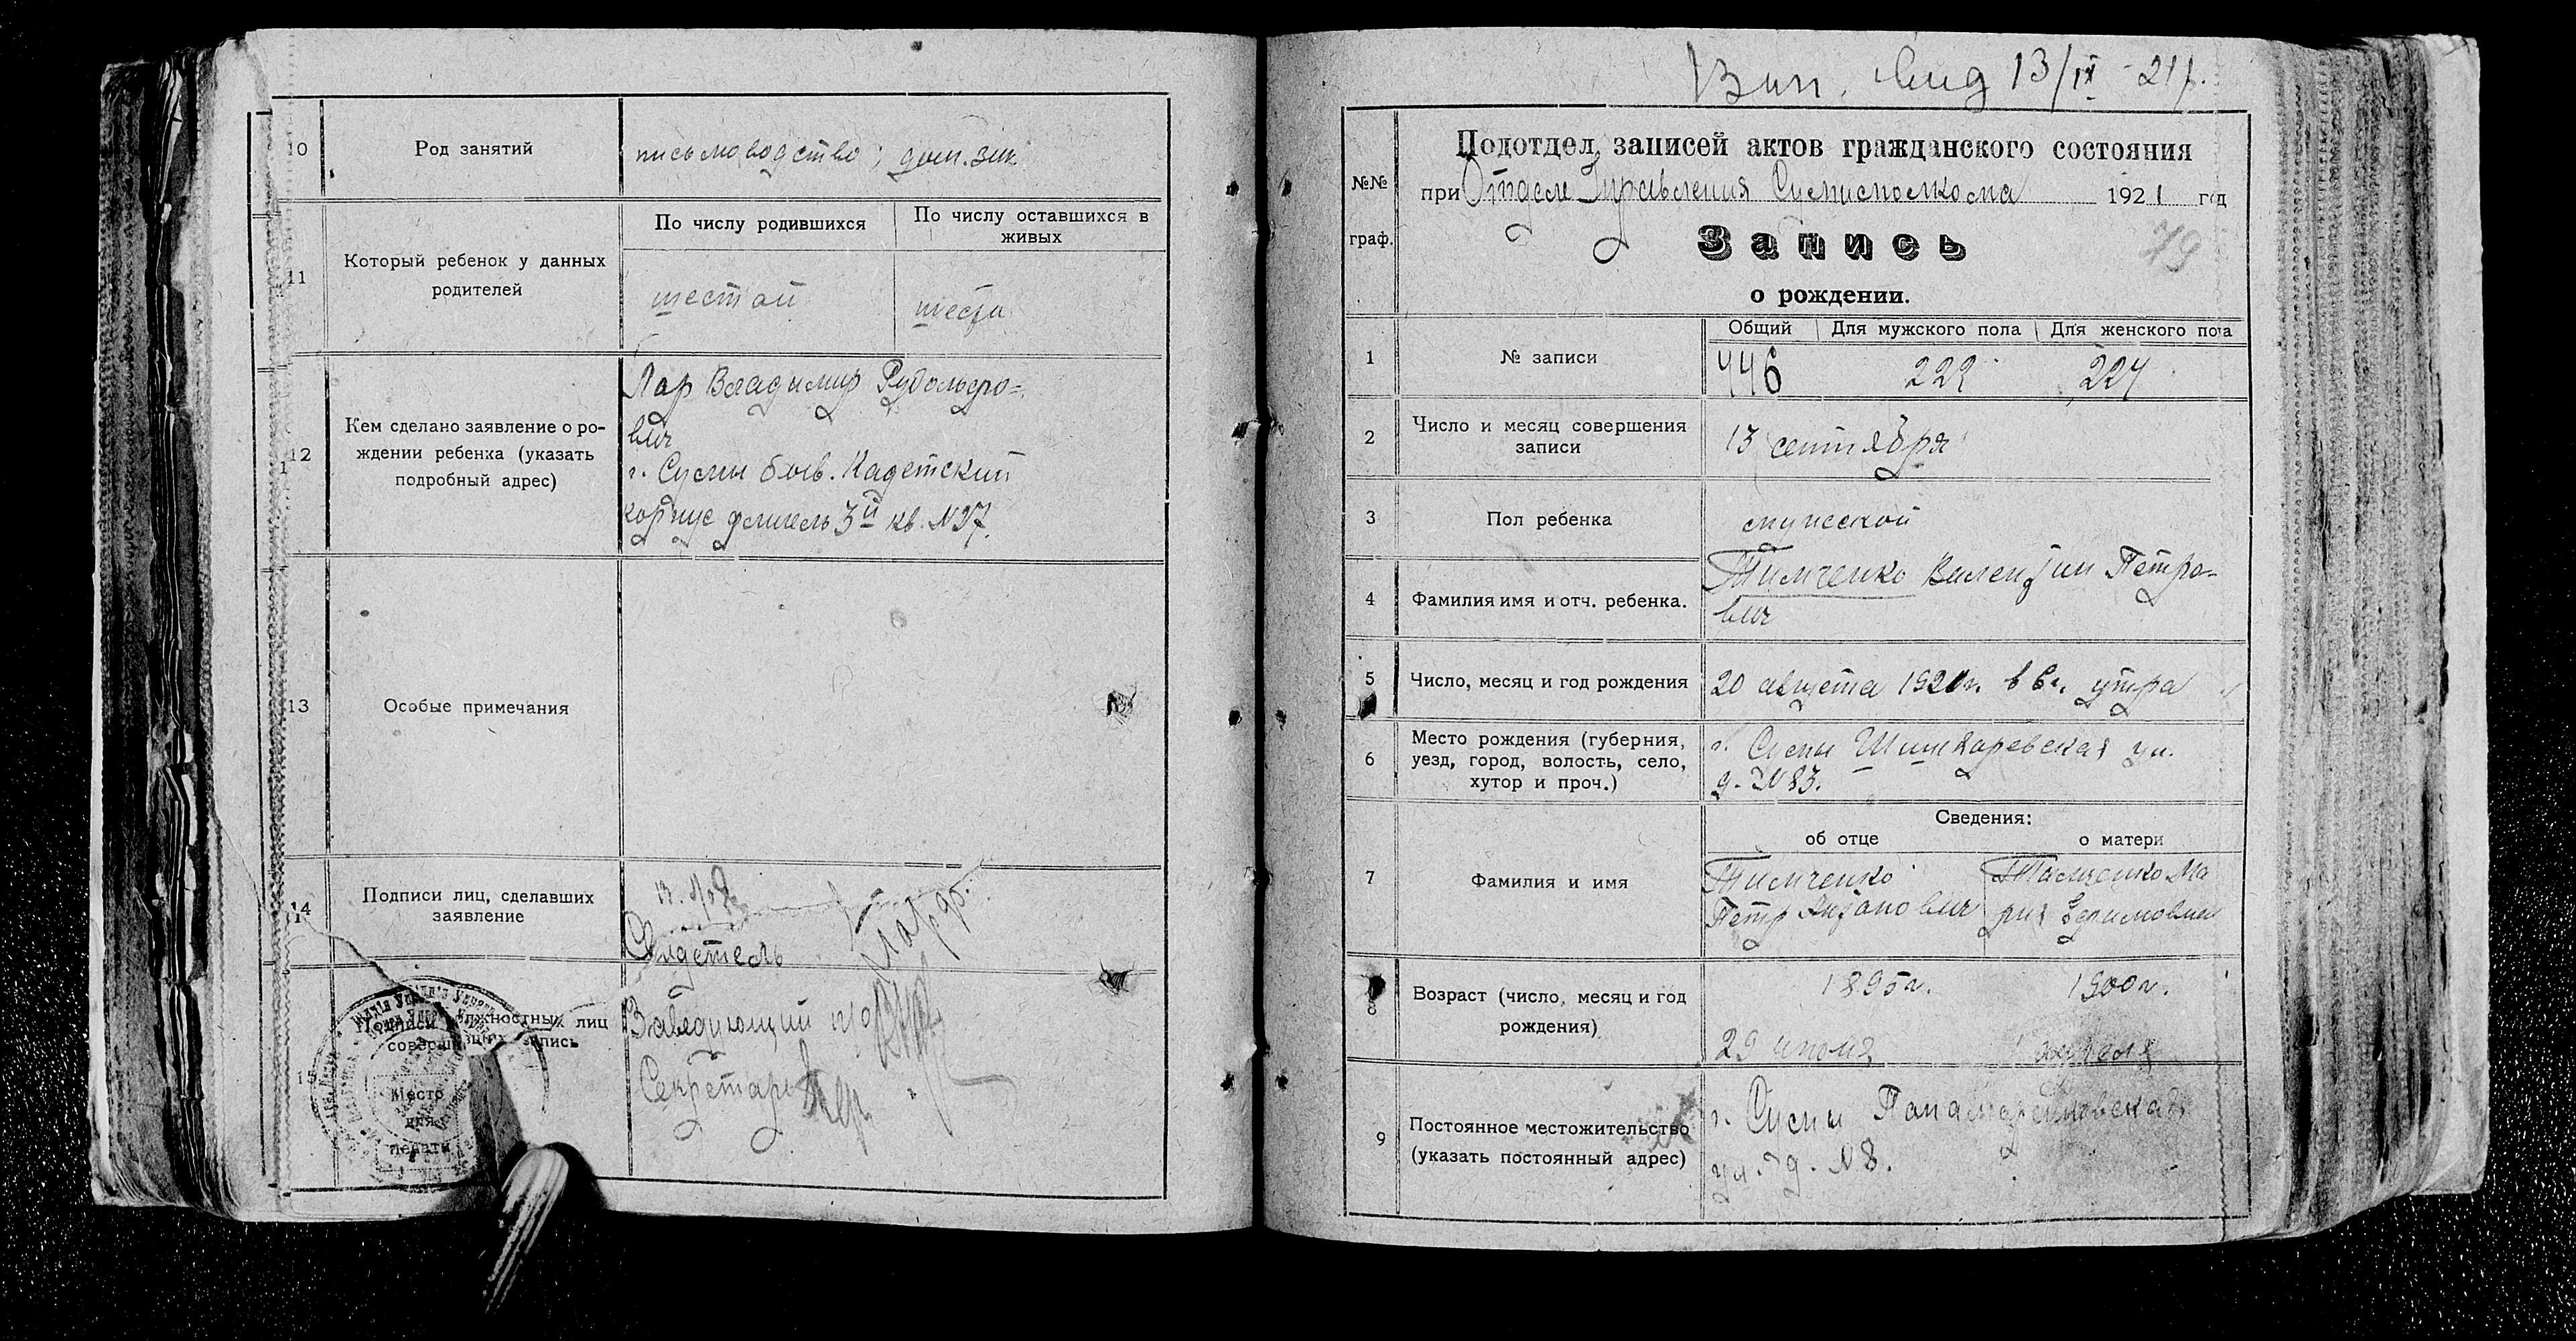 10 Род занятий письмоводство; дом. зан.
11 Который ребенок у данных родителей
По числу родившихся
По числу оставшихся в живых
шестой
12 Кем сделано заявление о ро-
ждении ребенка (указать
подробный адрес)
Лар Владимир Рудольфо-
вич
г. Сумы быв. Кадетский
корпус флигель 3й кв. №37.
13 Особые примечания
14 Подписи лиц, сделавших
заявление
Свидетель
15 Подписи должностных лиц
совершивших запись
Место
для
печати
Заведующий п/о
Секретарь
13/IX -21г.
Подотдел записей актов гражданского состояния
№№
граф.
при Отделе Управления Сумисполкома 1921 год
Запись
79
о рождении.
Общий Для мужского пола Для женского пола
1 № записи 446 222 224
2 Число и месяц совершения
записи
13 сентября
3 Пол ребенка мужской
4 Фамилия имя и отч. ребенка.
Тимченко Валентин Петро-
вич
5 Число, месяц и год рождения 20 августа 1921г. в 6ч. утра
6 Место рождения (губерния,
уезд, город, волость, село,
хутор и проч.)
г. Сумы Шишкаревская ул.
д. №83.
Сведения:
об отце о матери
7 Фамилия и имя
Тимченко
Петр
Тимченко Ма
рия
8 Возраст (число, месяц и год
рождения)
1895г. 1900г.
29 июня
9 Постоянное местожительство
(указать постоянный адрес)
г. Сумы
ул. д. №8.